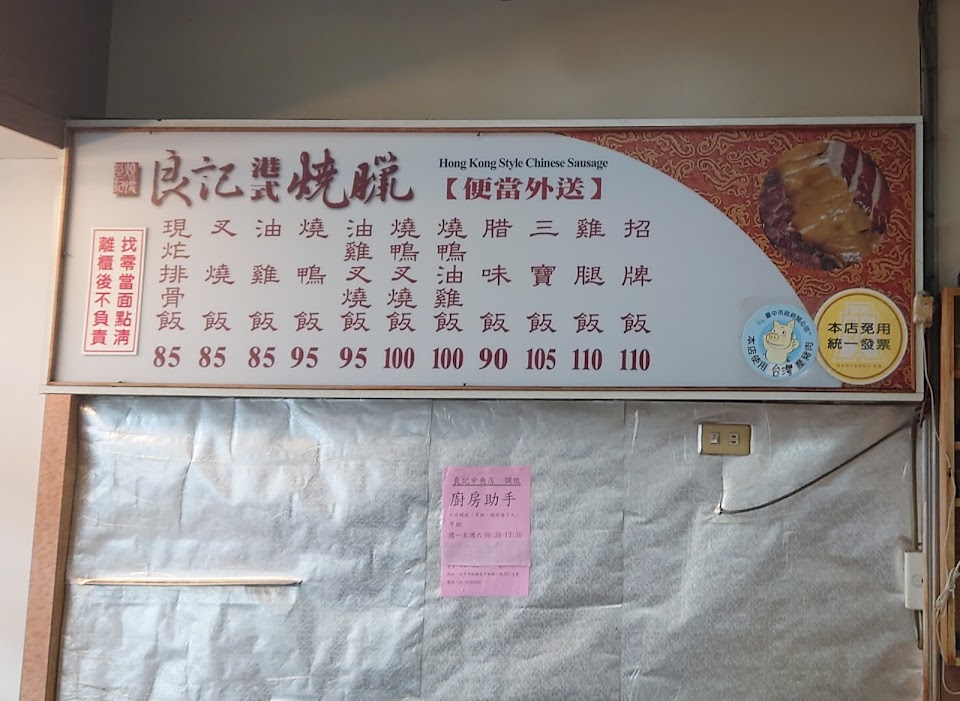 良記 港式 燒臘
Hong Kong Style Chinese Sausage
【便當外送】
找零當面點清
離櫃後不負責
現炸排骨飯 85
叉燒飯 85
油雞飯 85
燒鴨飯 95
油雞叉燒飯 95
燒鴨叉燒飯 100
燒鴨油雞飯 100
腊味飯 90
三寶飯 105
雞腿飯 110
招牌飯 110
臺中市政府關心您
本店使用台灣產豬肉
本店免用
統一發票
良記中央店 誠徵
廚房助手
早班
週一至週六 09:30-13:30